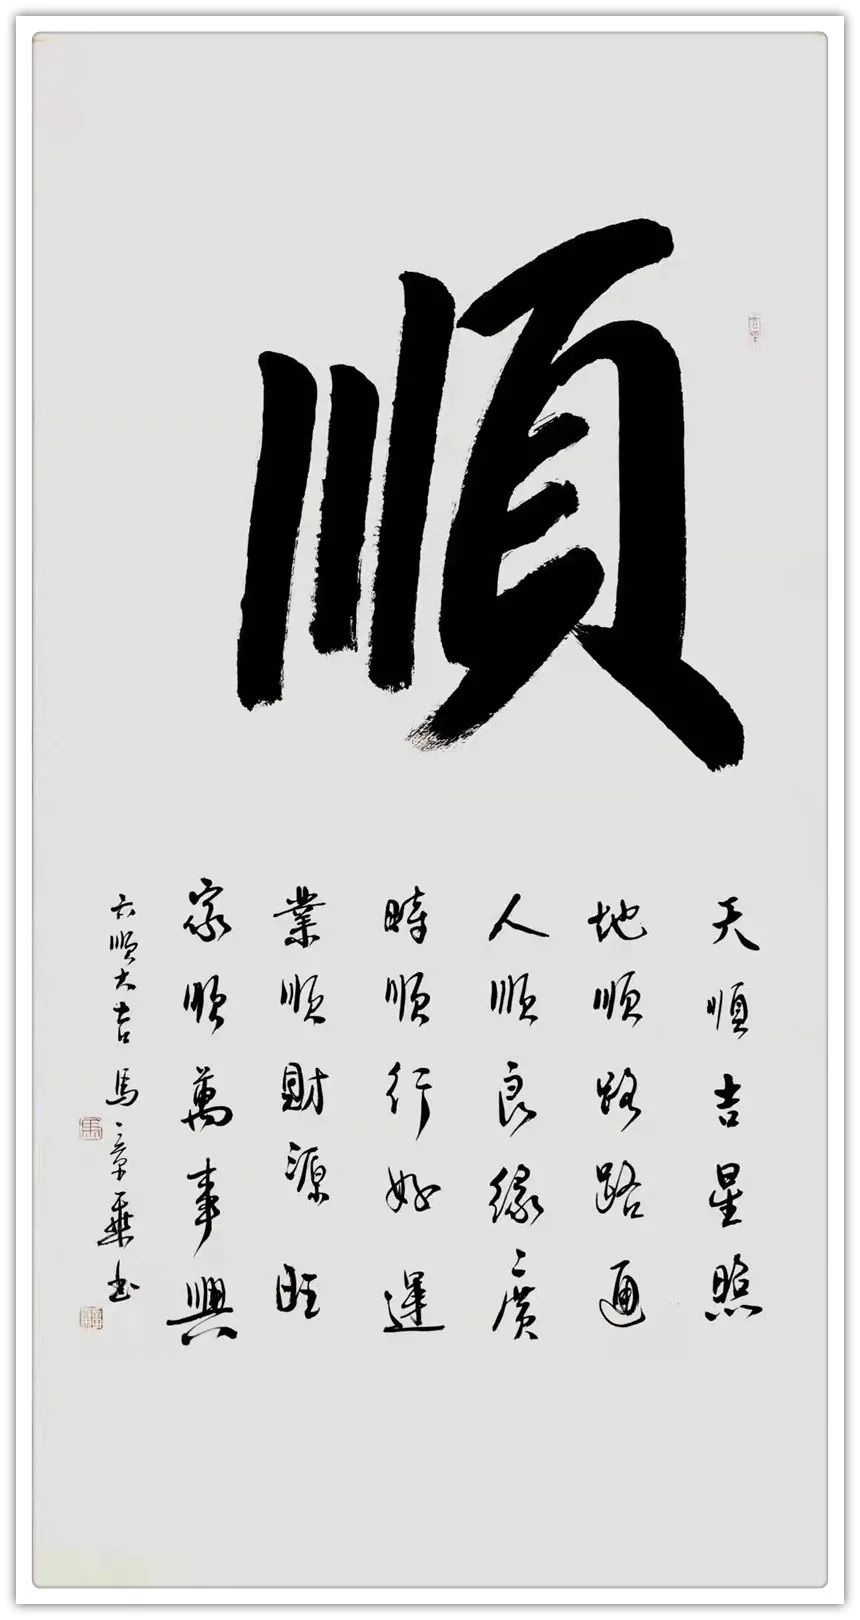 順
天順吉星照
地順路路通
人順良緣廣
時順行好運
業順財源旺
家順萬事興
六順大吉 馬章乘书